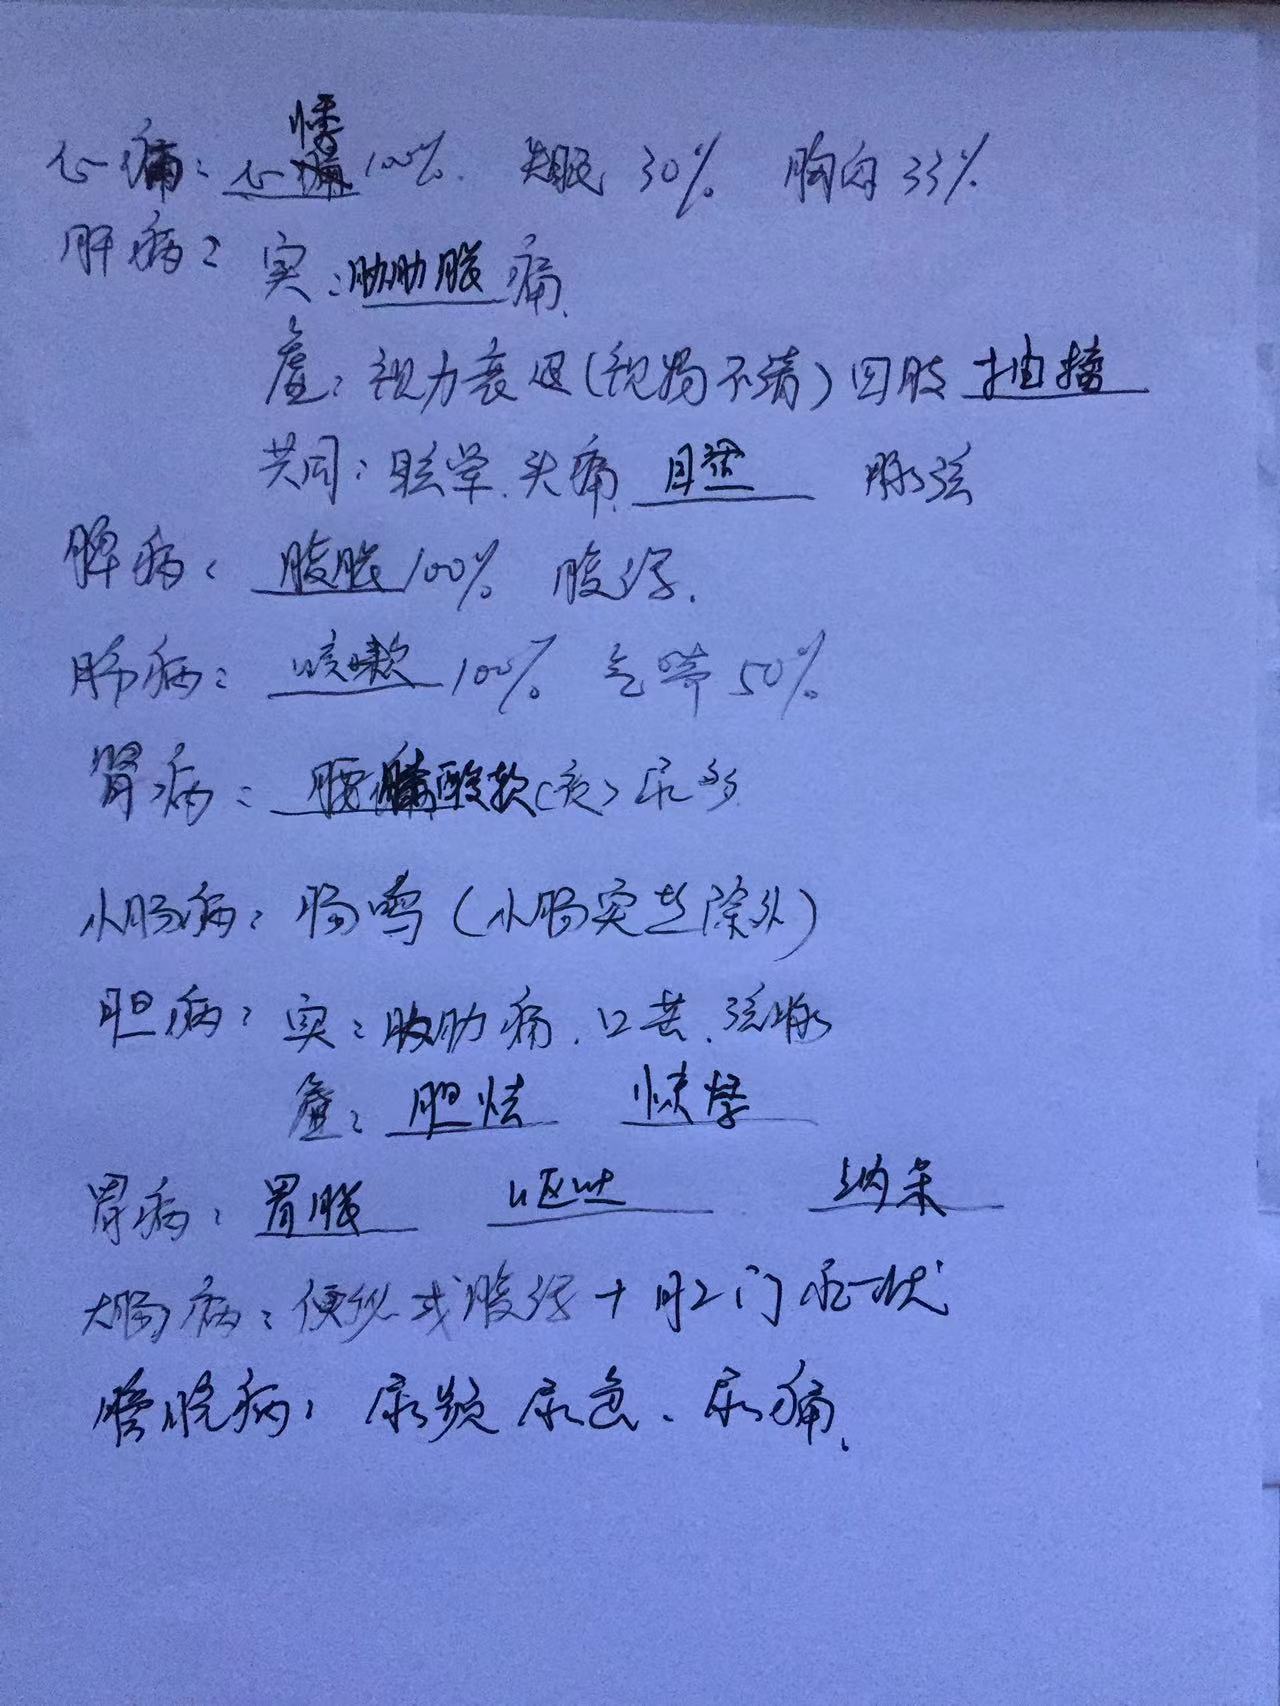 心病：心悸100%. 失眠 30% 胸闷 33%
肝病： 实：胁肋胀痛.
虚：视力衰退(视物不清) 四肢 抽搐
共同：眩晕.头痛 目 脉弦
脾病： 腹胀100% 腹泻.
肺病： 咳嗽 100% 气喘 50%
肾病： 腰膝酸软(夜)尿多
小肠病：肠鸣(小肠实热除外)
胆病：实：胁肋痛.口苦.弦脉
虚：胆怯 惊悸
胃病：胃胀 呕吐 纳呆
大肠病：便秘或腹泻+肛门症状
膀胱病：尿频 尿急、尿痛.